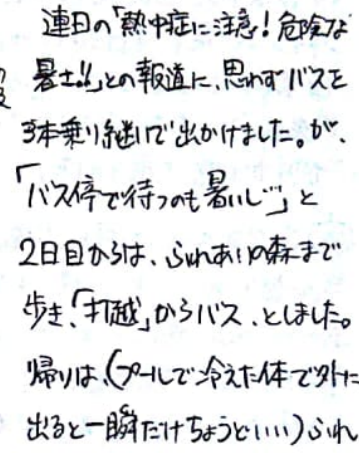 連日の「熱中症に注意！危険な
暑さ!!」との報道に、思わずバスを
3本乗り継いで出かけました。が、
「バス停で待つのも暑いし…」と
2日目からは、ふれあいの森まで
歩き、「打越」からバス、としました。
帰りは、(プールで冷えた体で外に
出ると一瞬だけちょうどいい)ふれ